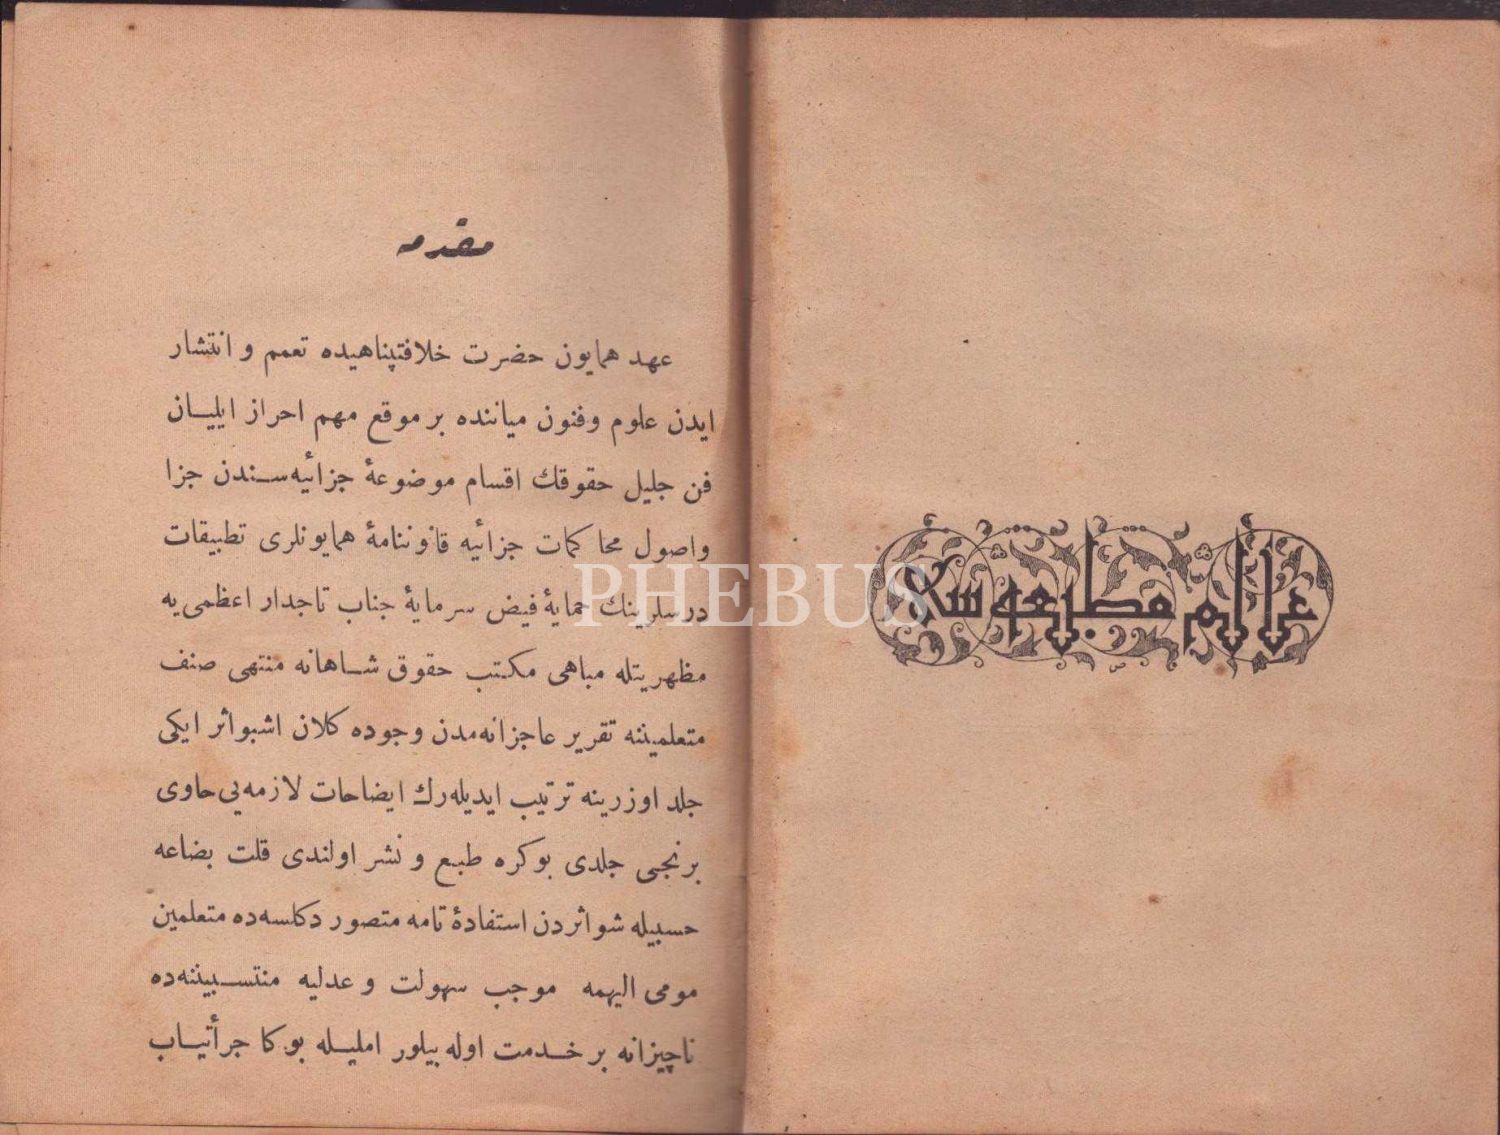 عالم مطبعه سی
مقدمه
عهد همایون حضرت خلافتپناهیده تعمم و انتشار
ایدن علوم وفنون میاننده بر موقع مهم احراز ایلیان
فن جلیل حقوقك اقسام موضوعهٔ جزائیه‌سندن جزا
واصول محاکمات جزائیه قانوننامهٔ همایونلری تطبیقات
درسلرینك حمایهٔ فیض سرمایهٔ جناب تاجدار اعظمی‌یه
مظهریتله مباهی مکتب حقوق شاهانه منتهی صنف
متعلمیننه تقریر عاجزانه‌مدن وجوده کلان اشبواثر ایکی
جلد اوزرینه ترتیب ایدیله‌رك ایضاحات لازمه‌یی حاوی
برنجی جلدی بوکره طبع و نشر اولندی قلت بضاعه
حسبیله شواثردن استفادهٔ تامه متصور دکلسه‌ده متعلمین
مومی الیهمه موجب سهولت و عدلیه منتسبیننه‌ده
ناچیزانه بر خدمت اوله بیلور املیله بوکا جرأتیاب
PHEBUS